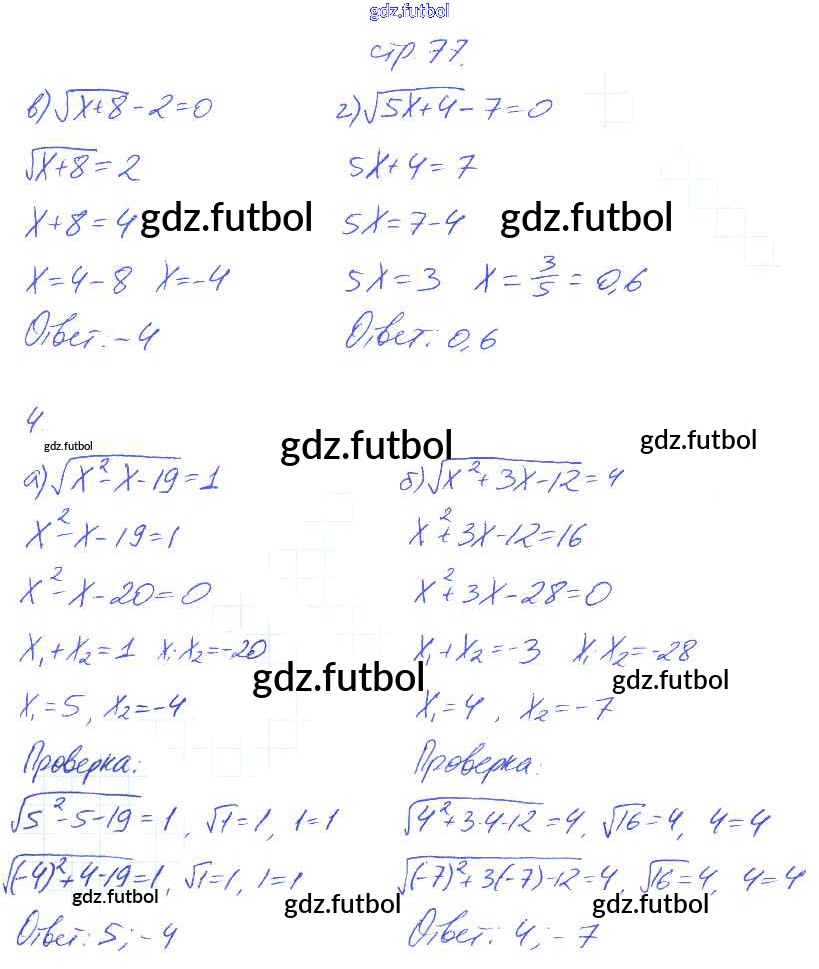 gdz.futbol
стр. 77.
в) √(x+8) - 2 = 0
√(x+8) = 2
x + 8 = 4 gdz.futbol
x = 4 - 8 x = -4
Ответ: -4
г) √(5x+4) - 7 = 0
5x + 4 = 7
5x = 7 - 4 gdz.futbol
5x = 3 x = 3/5 = 0,6
Ответ: 0,6
4.
gdz.futbol gdz.futbol gdz.futbol
а) √(x² - x - 19) = 1
x² - x - 19 = 1
x² - x - 20 = 0
x₁ + x₂ = 1 x₁·x₂ = -20
gdz.futbol
x₁ = 5, x₂ = -4
Проверка:
√(5² - 5 - 19) = 1, √1 = 1, 1 = 1
√((-4)² + 4 - 19) = 1, √1 = 1, 1 = 1
gdz.futbol gdz.futbol
Ответ: 5; -4
б) √(x² + 3x - 12) = 4
x² + 3x - 12 = 16
x² + 3x - 28 = 0
x₁ + x₂ = -3 x₁·x₂ = -28
gdz.futbol
x₁ = 4, x₂ = -7
Проверка:
√(4² + 3·4 - 12) = 4, √16 = 4, 4 = 4
√((-7)² + 3(-7) - 12 = 4, √16 = 4, 4 = 4
gdz.futbol
Ответ: 4; -7